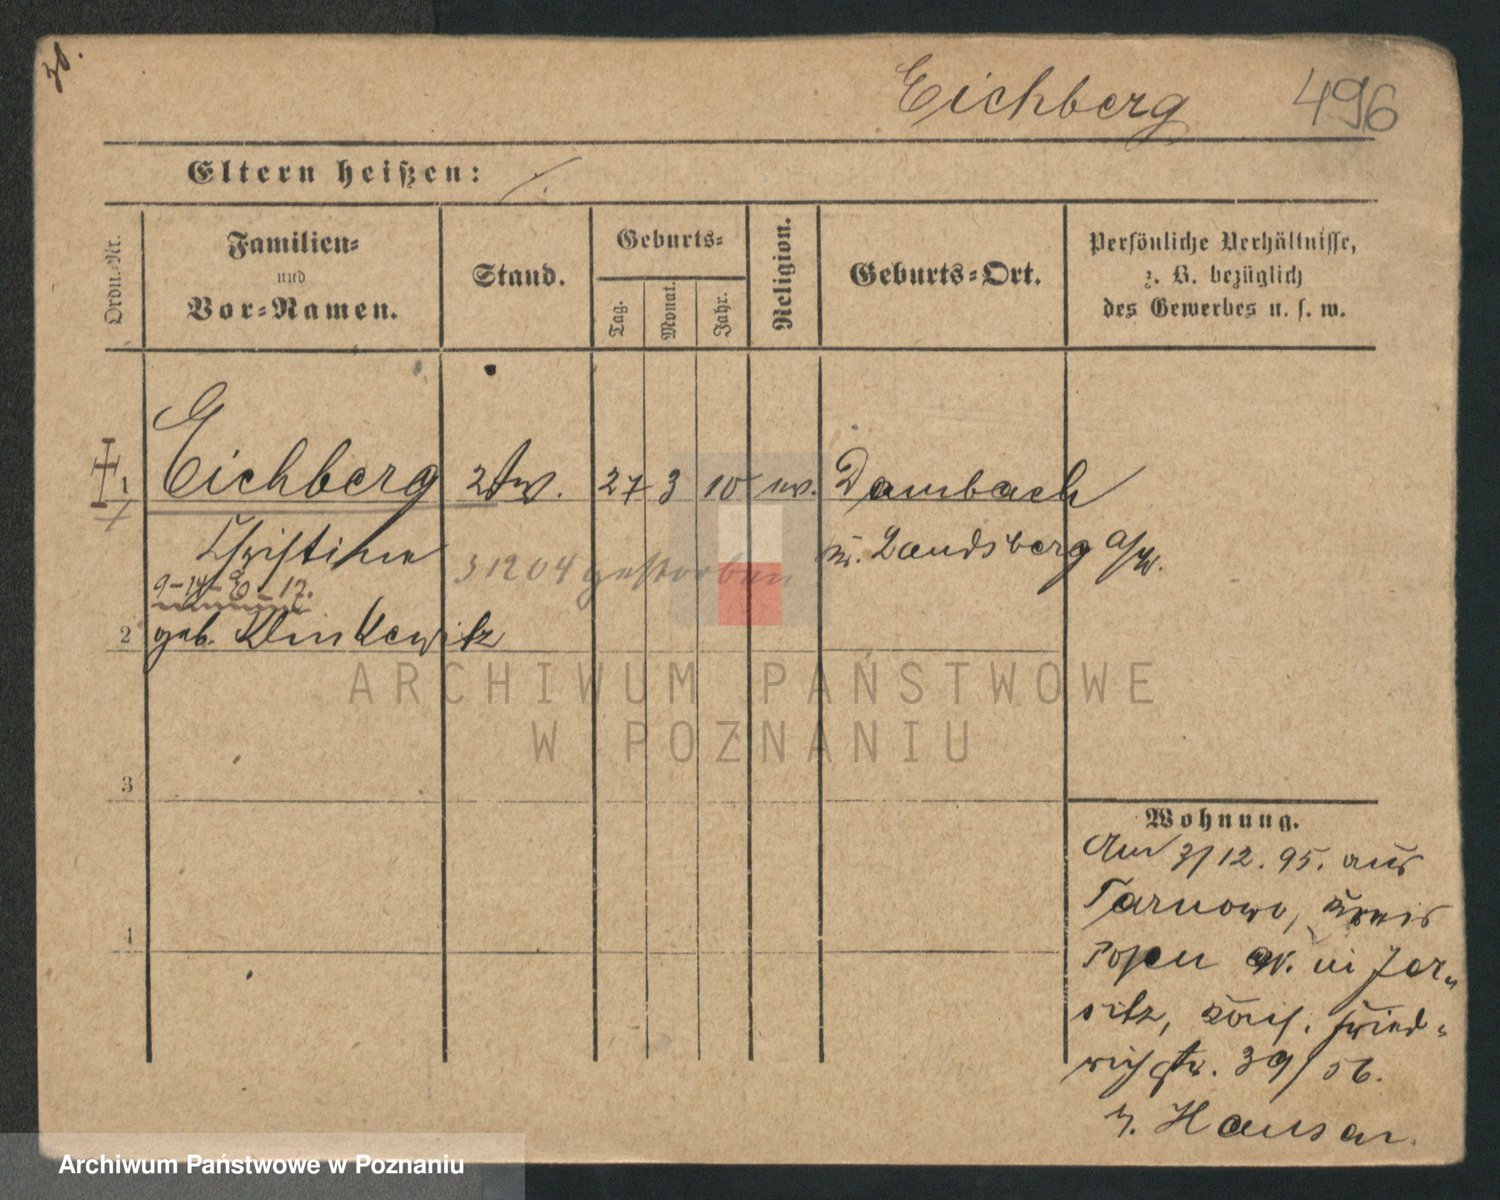 Eichberg 496
Eltern heißen:
Ordn.-Nr.
Familien-
und
Vor-Namen.
Stand.
Geburts-
Tag.
Monat.
Jahr.
Religion.
Geburts-Ort.
Persönliche Verhältnisse,
z. B. bezüglich
des Gewerbes u. s. w.
1 Eichberg Wtw. 27 3 10 ev. Dambach
Christine
3 12 04 gestorben
Kr. Landsberg a/W.
2 geb. Klinkewitz
3
4
Wohnung.
Am 3/12. 95. aus
Tarnowo, Kreis
Posen in Jer-
sitz, Kais. Fried-
richstr. 39/56.
b. Hauser.
ARCHIWUM PAŃSTWOWE
W POZNANIU
Archiwum Państwowe w Poznaniu